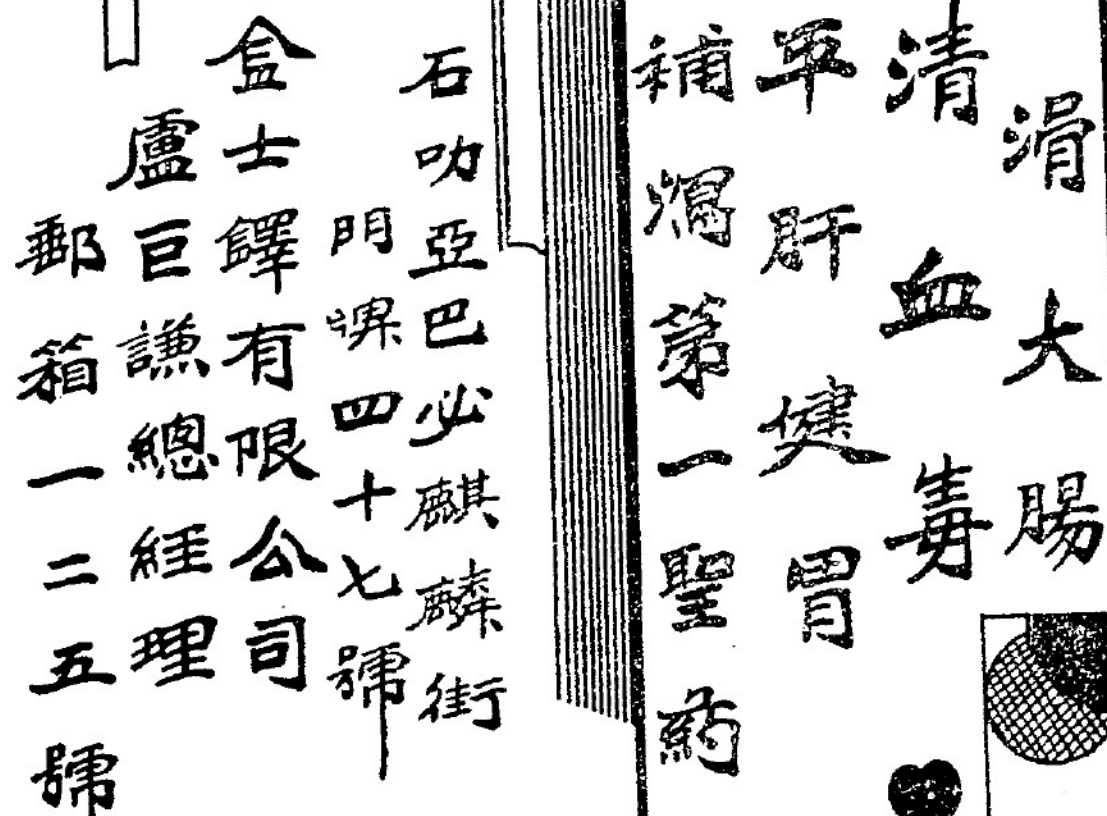 滑大腸
清血毒
平肝健胃
補瀉第一聖葯
石叻亞巴必麒麟街
門牌四十七號
盒士鐸有限公司
盧巨謙總經理
郵箱一二五號